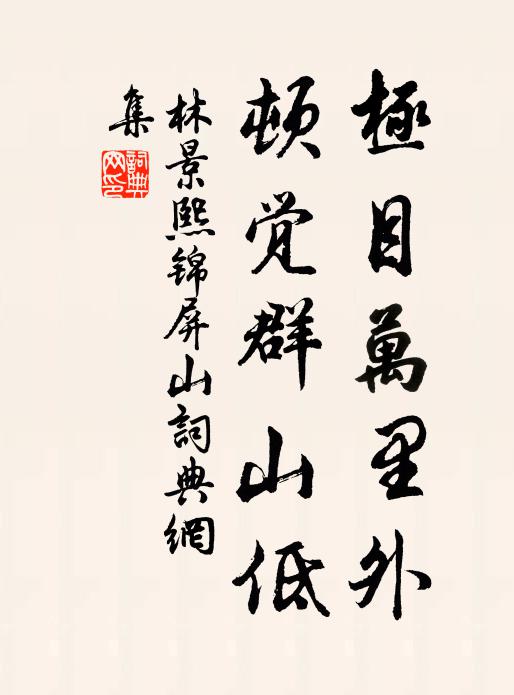 極目萬里外
頓觉群山低
林景熙锦屏山詞典網
集
詞典
网印